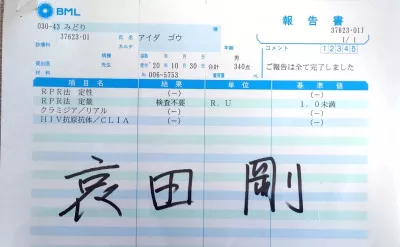 BML
報告書
030-43 みどり
37623-01
アイダ ゴウ
37623-01
1/1
診療科
カルテ
年齢
コメント 12345
男
20年10月30日
合計 340点
ご報告は全て完了しました
材料
No. 006-5753
項目名 結果 単位 基準値
RPR法 定性 (−) (−)
RPR法 定量 検査不要 R.U 1.0未満
クラミジア/リアル (−) (−)
HIV抗原抗体/CLIA (−) (−)
哀田 剛